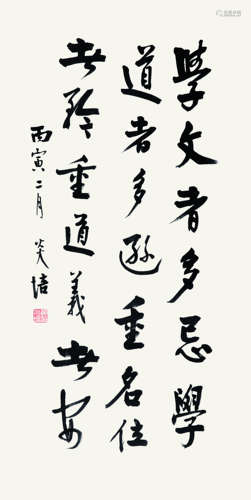 學文者多忌學
道者多遜重名位
者矜重道義者安
丙寅二月 炎培